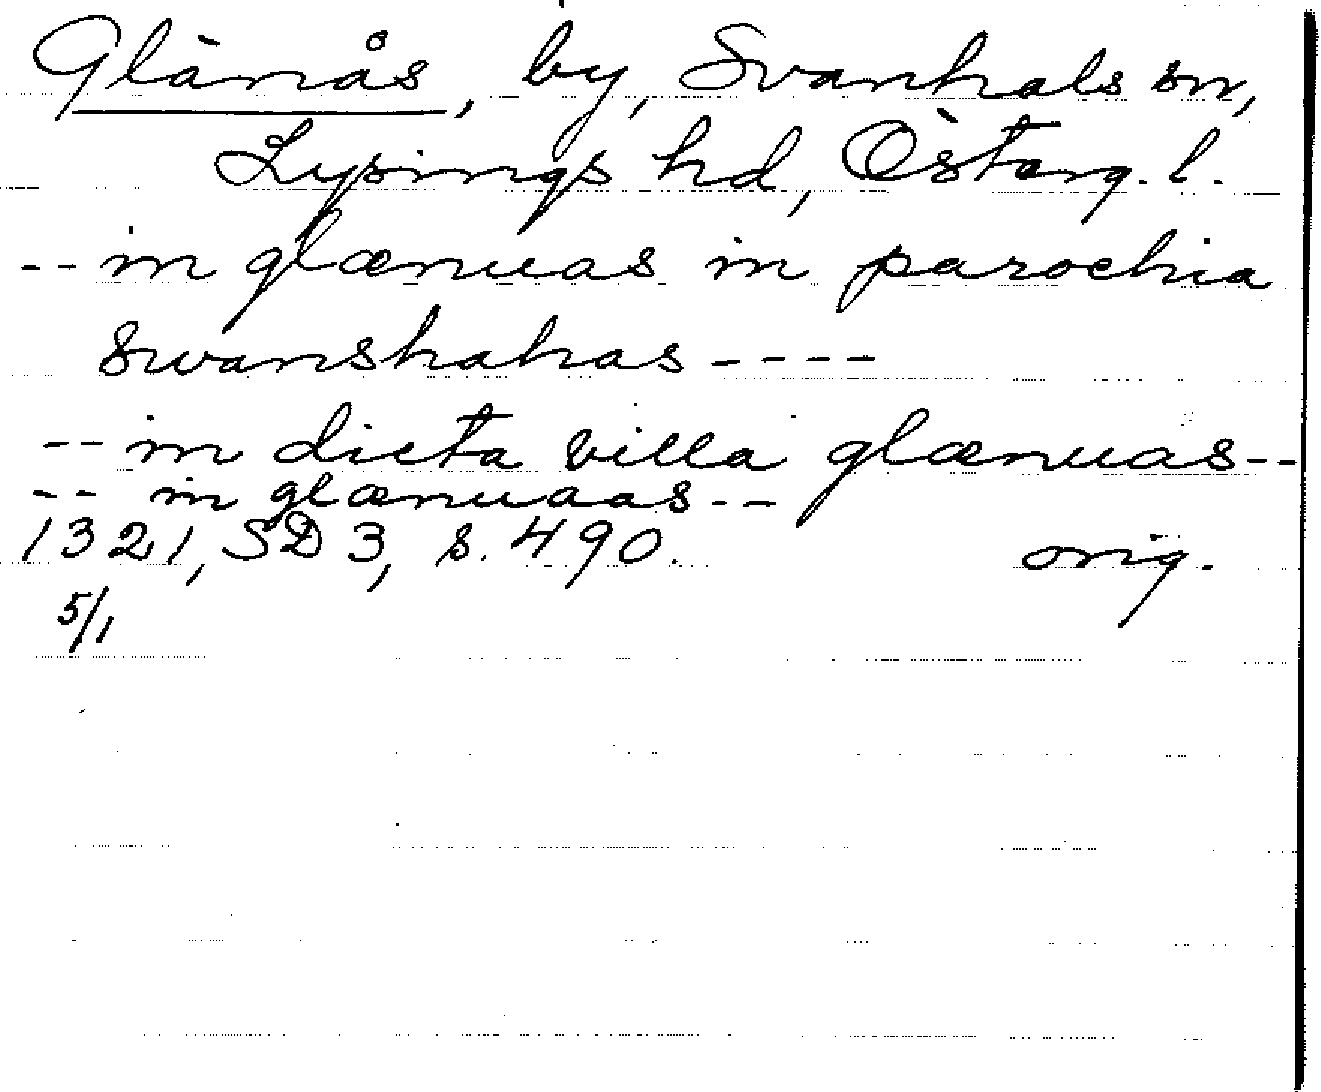 Glänås, by, Svanhals sn,
Lysings hd, Österg. l.
-- in glænuas in parochia
swanshahas ----
-- in dicta villa glænuas --
-- in glænuaas --
1321, SD 3, s. 490. orig.
5/1